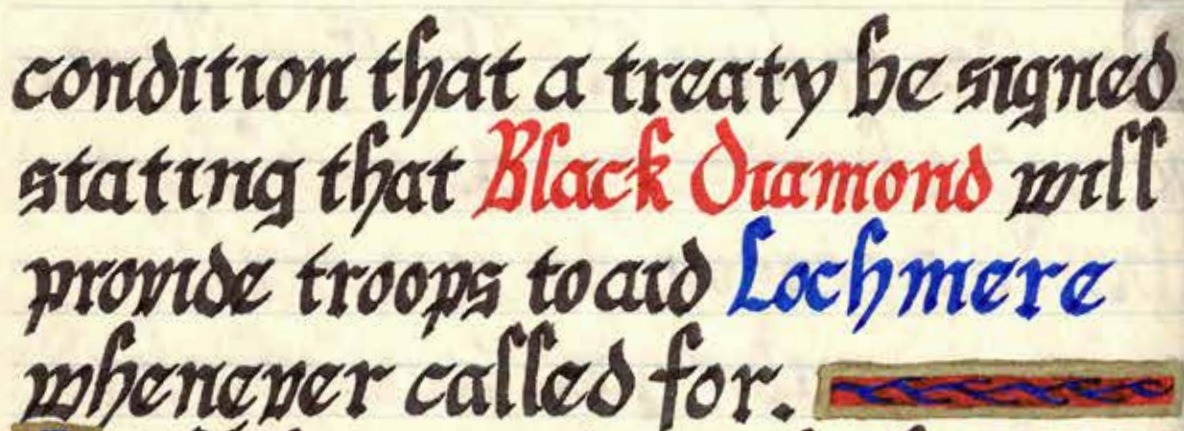 condition that a treaty be signed
stating that Black Diamond will
provide troops to aid Lochmere
whenever called for.